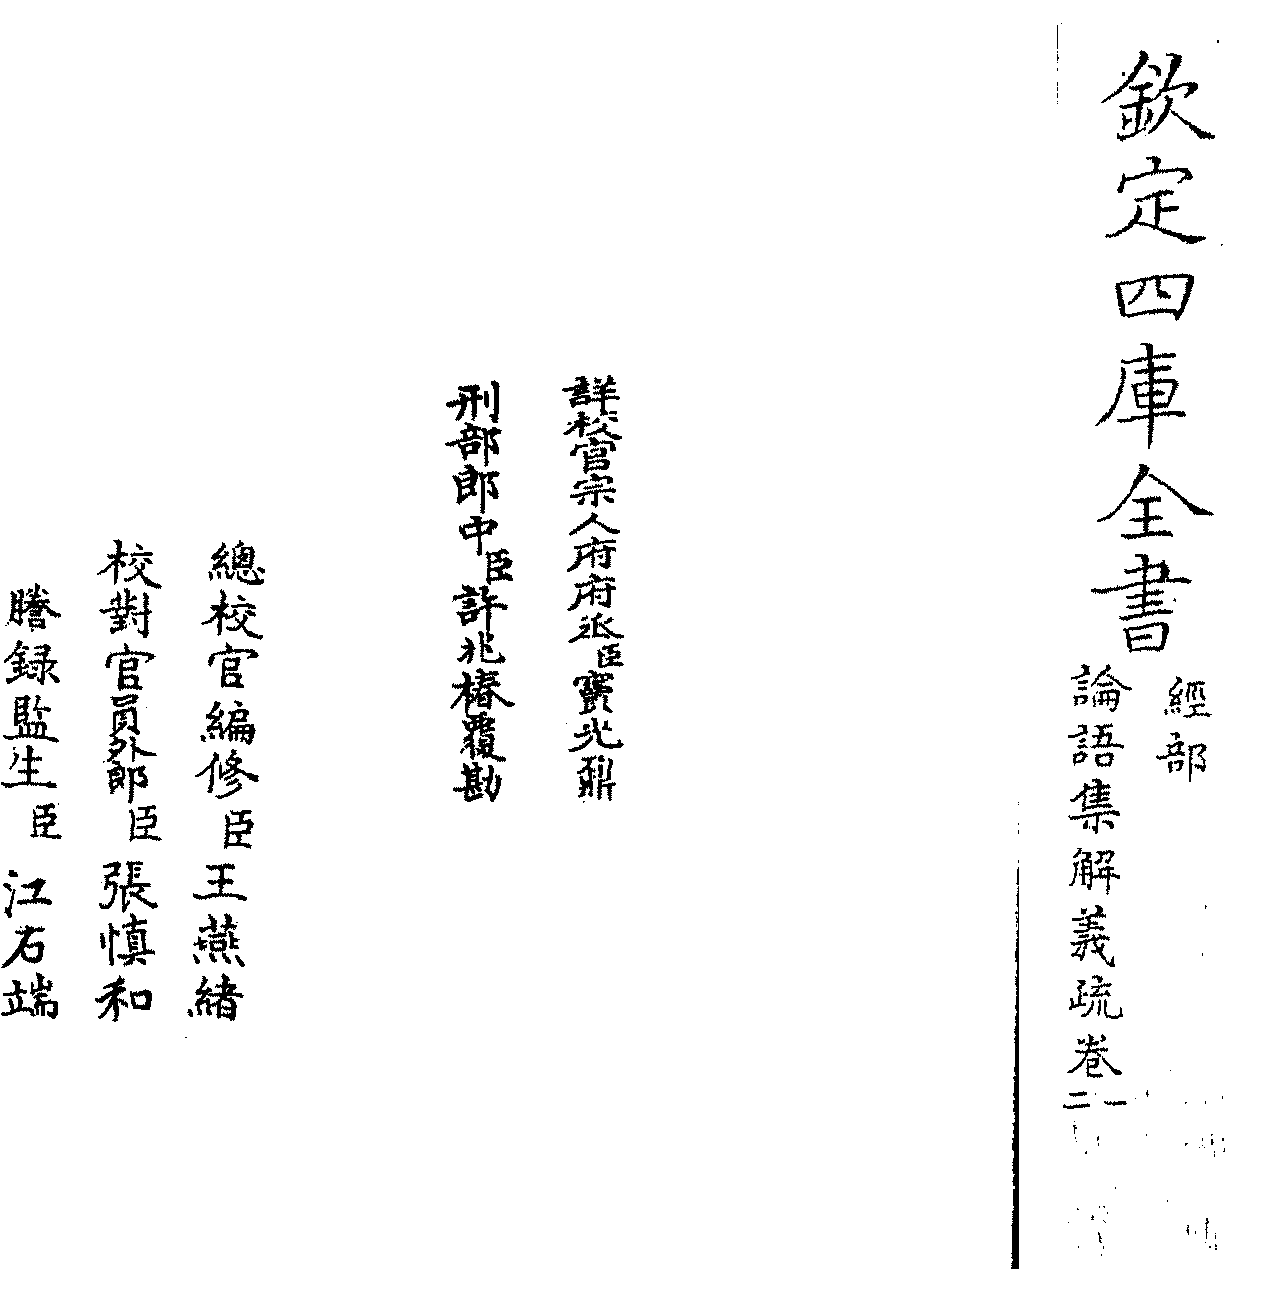 欽定四庫全書
經部
論語集解義疏卷一二
詳校官宗人府府丞臣竇光鼐
刑部郎中臣許兆椿覆勘
總校官編修臣王燕緒
校對官員外郎臣張慎和
謄録監生臣江石端